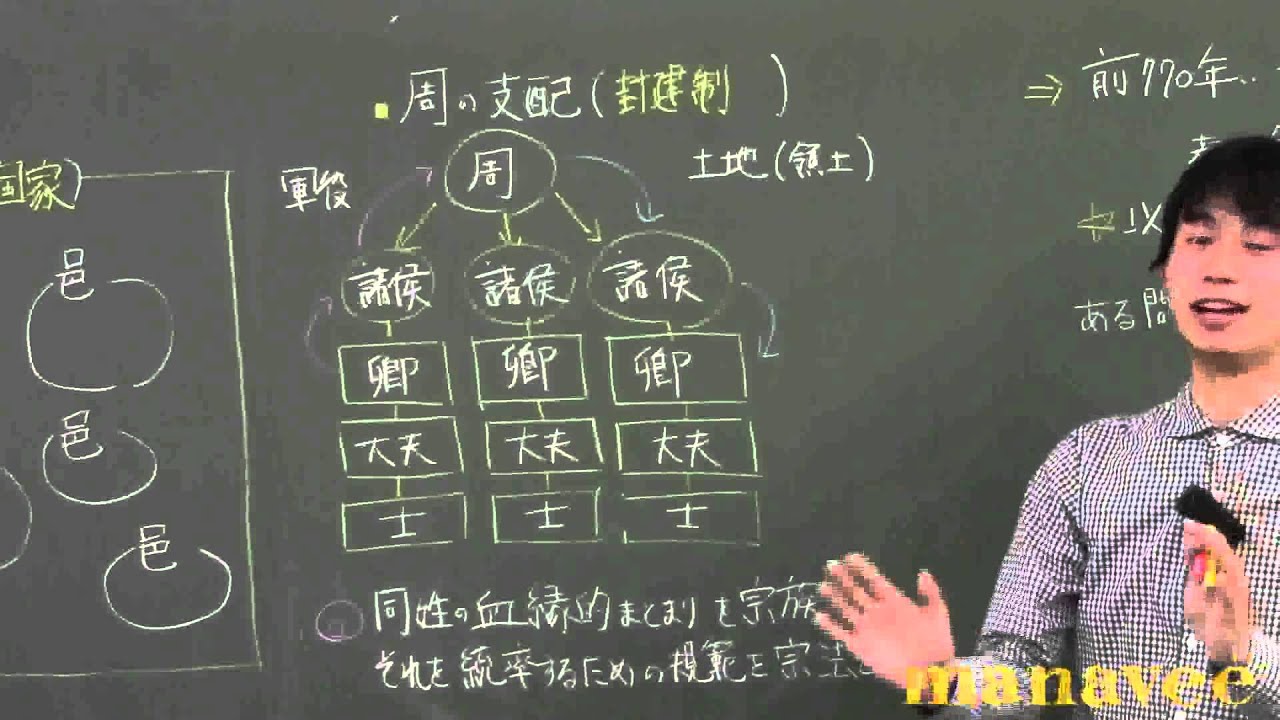 国家)
邑
邑
邑
周の支配(封建制 )
軍役
周
土地(領土)
諸侯 諸侯 諸侯
卿 卿 卿
大夫 大夫 大夫
士 士 士
同姓の血縁的まとまりを宗族
それを統率するための規範を宗法と
⇒ 前770年..
以
ある問
manavee